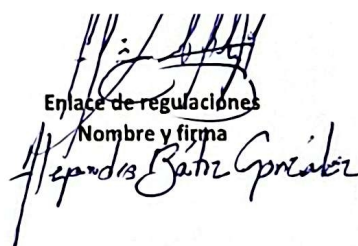 Enlace de regulaciones
Nombre y firma
Alejandra Bátiz González